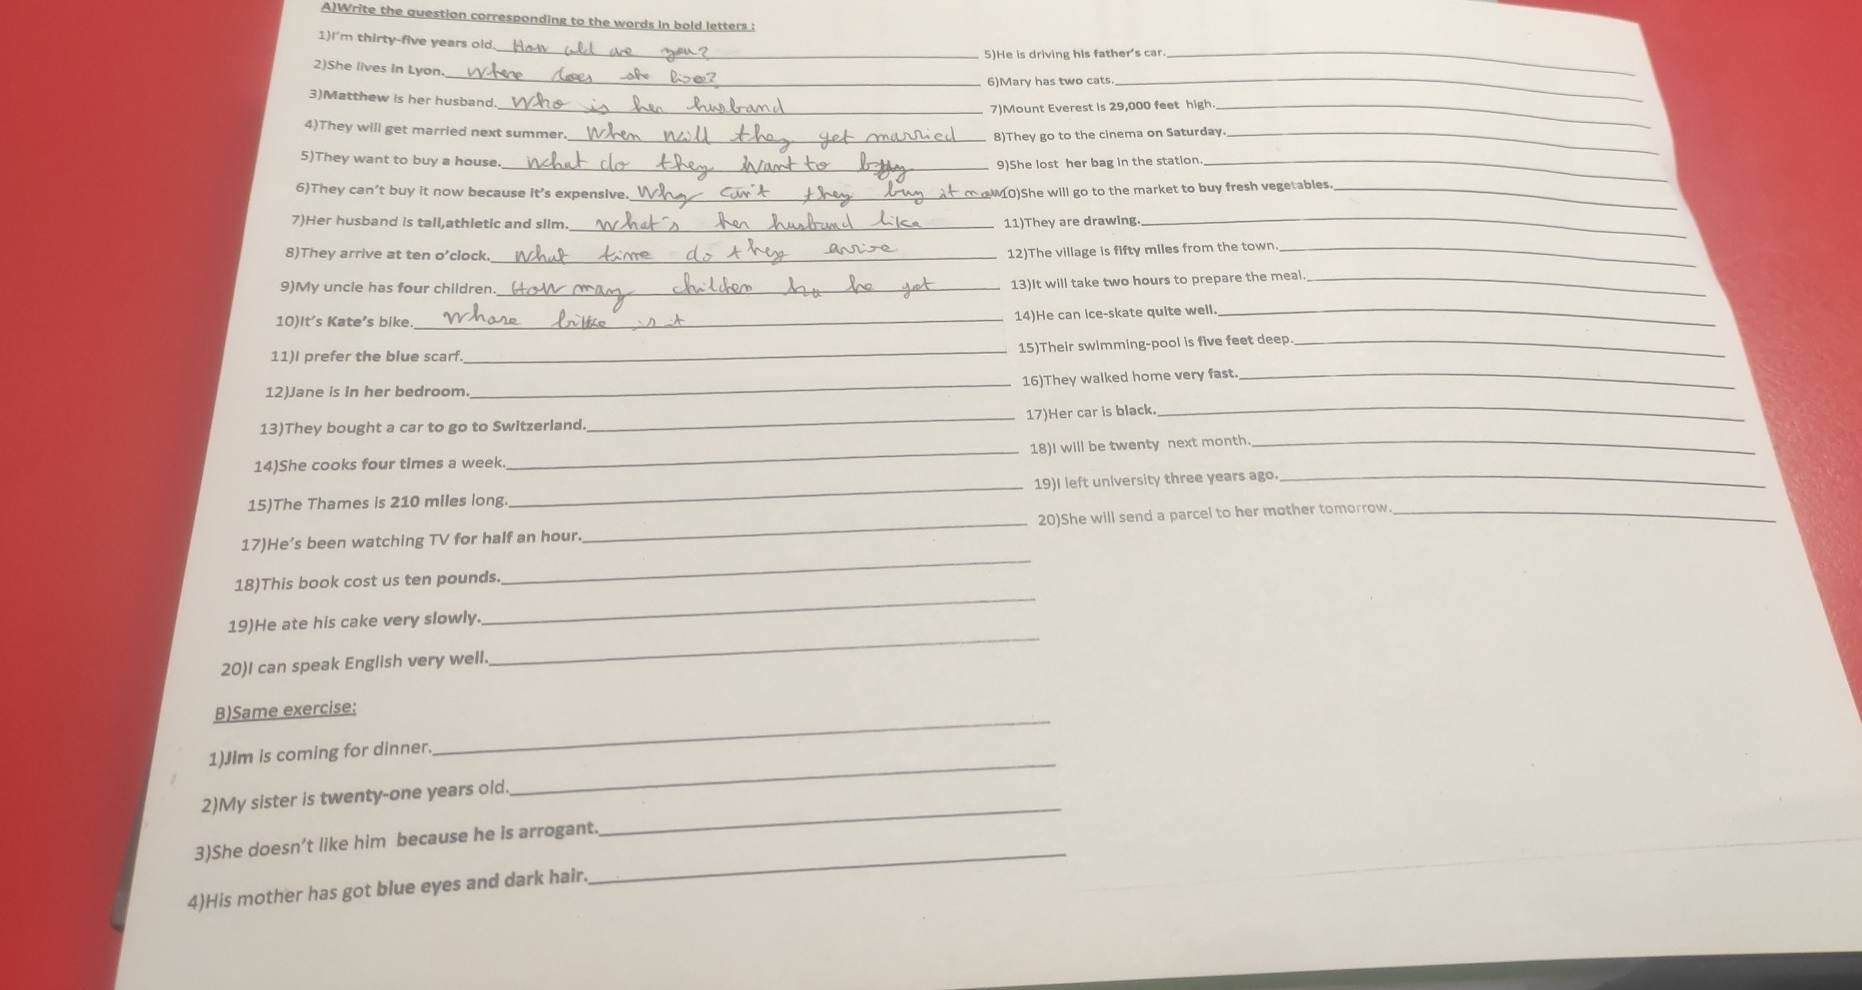 A)Write the question corresponding to the words in bold letters :
1)I'm thirty-five years old. How old are you?
2)She lives in Lyon. Where does she live?
3)Matthew is her husband. Who is her husband
4)They will get married next summer. When will they get married
5)They want to buy a house. What do they want to buy
6)They can't buy it now because it's expensive. Why can't they buy it now
7)Her husband is tall,athletic and slim. What's her husband like
8)They arrive at ten o'clock. What time do they arrive
9)My uncle has four children. How many children ha he got
10)It's Kate's bike. Whose bike is it
11)I prefer the blue scarf.
12)Jane is in her bedroom.
13)They bought a car to go to Switzerland.
14)She cooks four times a week.
15)The Thames is 210 miles long.
17)He's been watching TV for half an hour.
18)This book cost us ten pounds.
19)He ate his cake very slowly.
20)I can speak English very well.
B)Same exercise:
1)Jim is coming for dinner.
2)My sister is twenty-one years old.
3)She doesn't like him because he is arrogant.
4)His mother has got blue eyes and dark hair.
5)He is driving his father's car.
6)Mary has two cats.
7)Mount Everest is 29,000 feet high.
8)They go to the cinema on Saturday.
9)She lost her bag in the station.
10)She will go to the market to buy fresh vegetables.
11)They are drawing.
12)The village is fifty miles from the town.
13)It will take two hours to prepare the meal.
14)He can ice-skate quite well.
15)Their swimming-pool is five feet deep.
16)They walked home very fast.
17)Her car is black.
18)I will be twenty next month.
19)I left university three years ago.
20)She will send a parcel to her mother tomorrow.